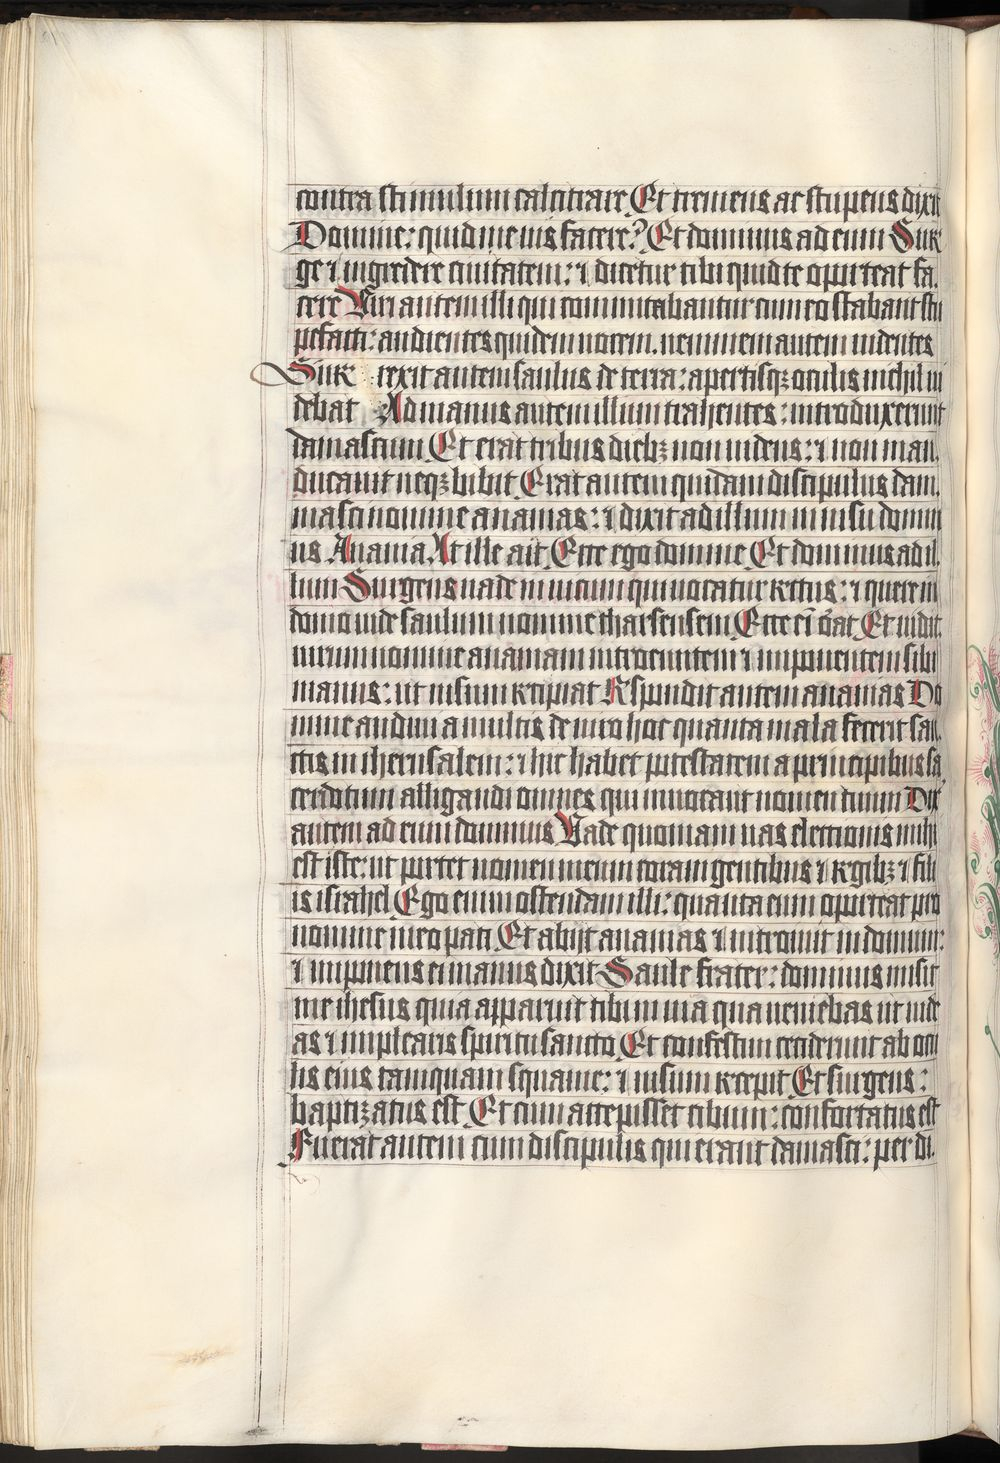 contra stimulum calcitrare Et tremens ac stupens dixit
Domine: quid me uis facere? Et dominus ad eum Sur
ge ⁊ ingredere ciuitatem: ⁊ dicetur tibi quid te oporteat fa.
cere Viri autem illi qui comitabantur cum eo stabant stu
pefacti: audientes quidem uocem. neminem autem uidentes
Sur rexit autem saulus de terra: apertisqꝫ oculis nichil ui
debat Ad manus autem illum trahentes: introduxerunt
damascum Et erat tribus diebꝫ non uidens: ⁊ non man.
ducauit neqꝫ bibit Erat autem quidam discipulus dam.
masci nomine ananias: ⁊ dixit ad illum in uisu domin
us Anania At ille ait Ecce ego domine Et dominus ad il.
lum Surgens uade in uicum qui uocatur rectus: ⁊ quere in
domo iude saulum nomine tharsensem Ecce eī orat Et uidit
uirum nomine ananiam introeuntem ⁊ imponentem sibi
manus: ut uisum recipiat Respondit autem ananias Do
mine audiui a multis de uiro hoc quanta mala fecerit san.
ctis in iherusalem: ⁊ hic habet potestatem a principibus sa
cerdotum alligandi omnes qui inuocant nomen tuum Dix
autem ad eum dominus Vade quoniam uas electionis mihi
est iste: ut portet nomen meum coram gentibus ⁊ regibꝫ ⁊ fili
is israhel Ego enim ostendam illi: quanta eum oporteat pro
nomine meo pati Et abijt ananias ⁊ introiuit in domum:
⁊ imponens ei manus dixit Saule frater: dominus misit
me ihesus qui apparuit tibi in uia qua ueniebas ut uide
as ⁊ implearis spiritu sancto Et confestim ceciderunt ab ocu
lis eius tamquam squame: ⁊ uisum recepit Et surgens:
baptizatus est Et cum accepisset cibum: confortatus est
Fuerat autem cum discipulis qui erant damasci: per di.